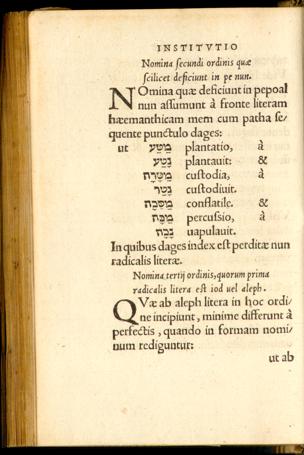 INSTITVTIO
Nomina secundi ordinis quæ
scilicet deficiunt in pe nun.
NOmina quæ deficiunt in pepoal
nun assumunt à fronte literam
hæemanthicam mem cum patha se/
quente punctulo dages:
ut מַטַּע plantatio, à
נָטַע plantauit: &
custodia, à
נָטַר custodiuit.
מַסֵּכָה conflatile. &
מַכָּה percussio, à
נָכָה uapulauit.
In quibus dages index est perditæ nun
radicalis literæ.
Nomina tertij ordinis, quorum prima
radicalis litera est iod uel aleph.
QVæ ab aleph litera in hoc ordi/
ne incipiunt, minime differunt à
perfectis, quando in formam nomi/
num rediguntur:
ut ab